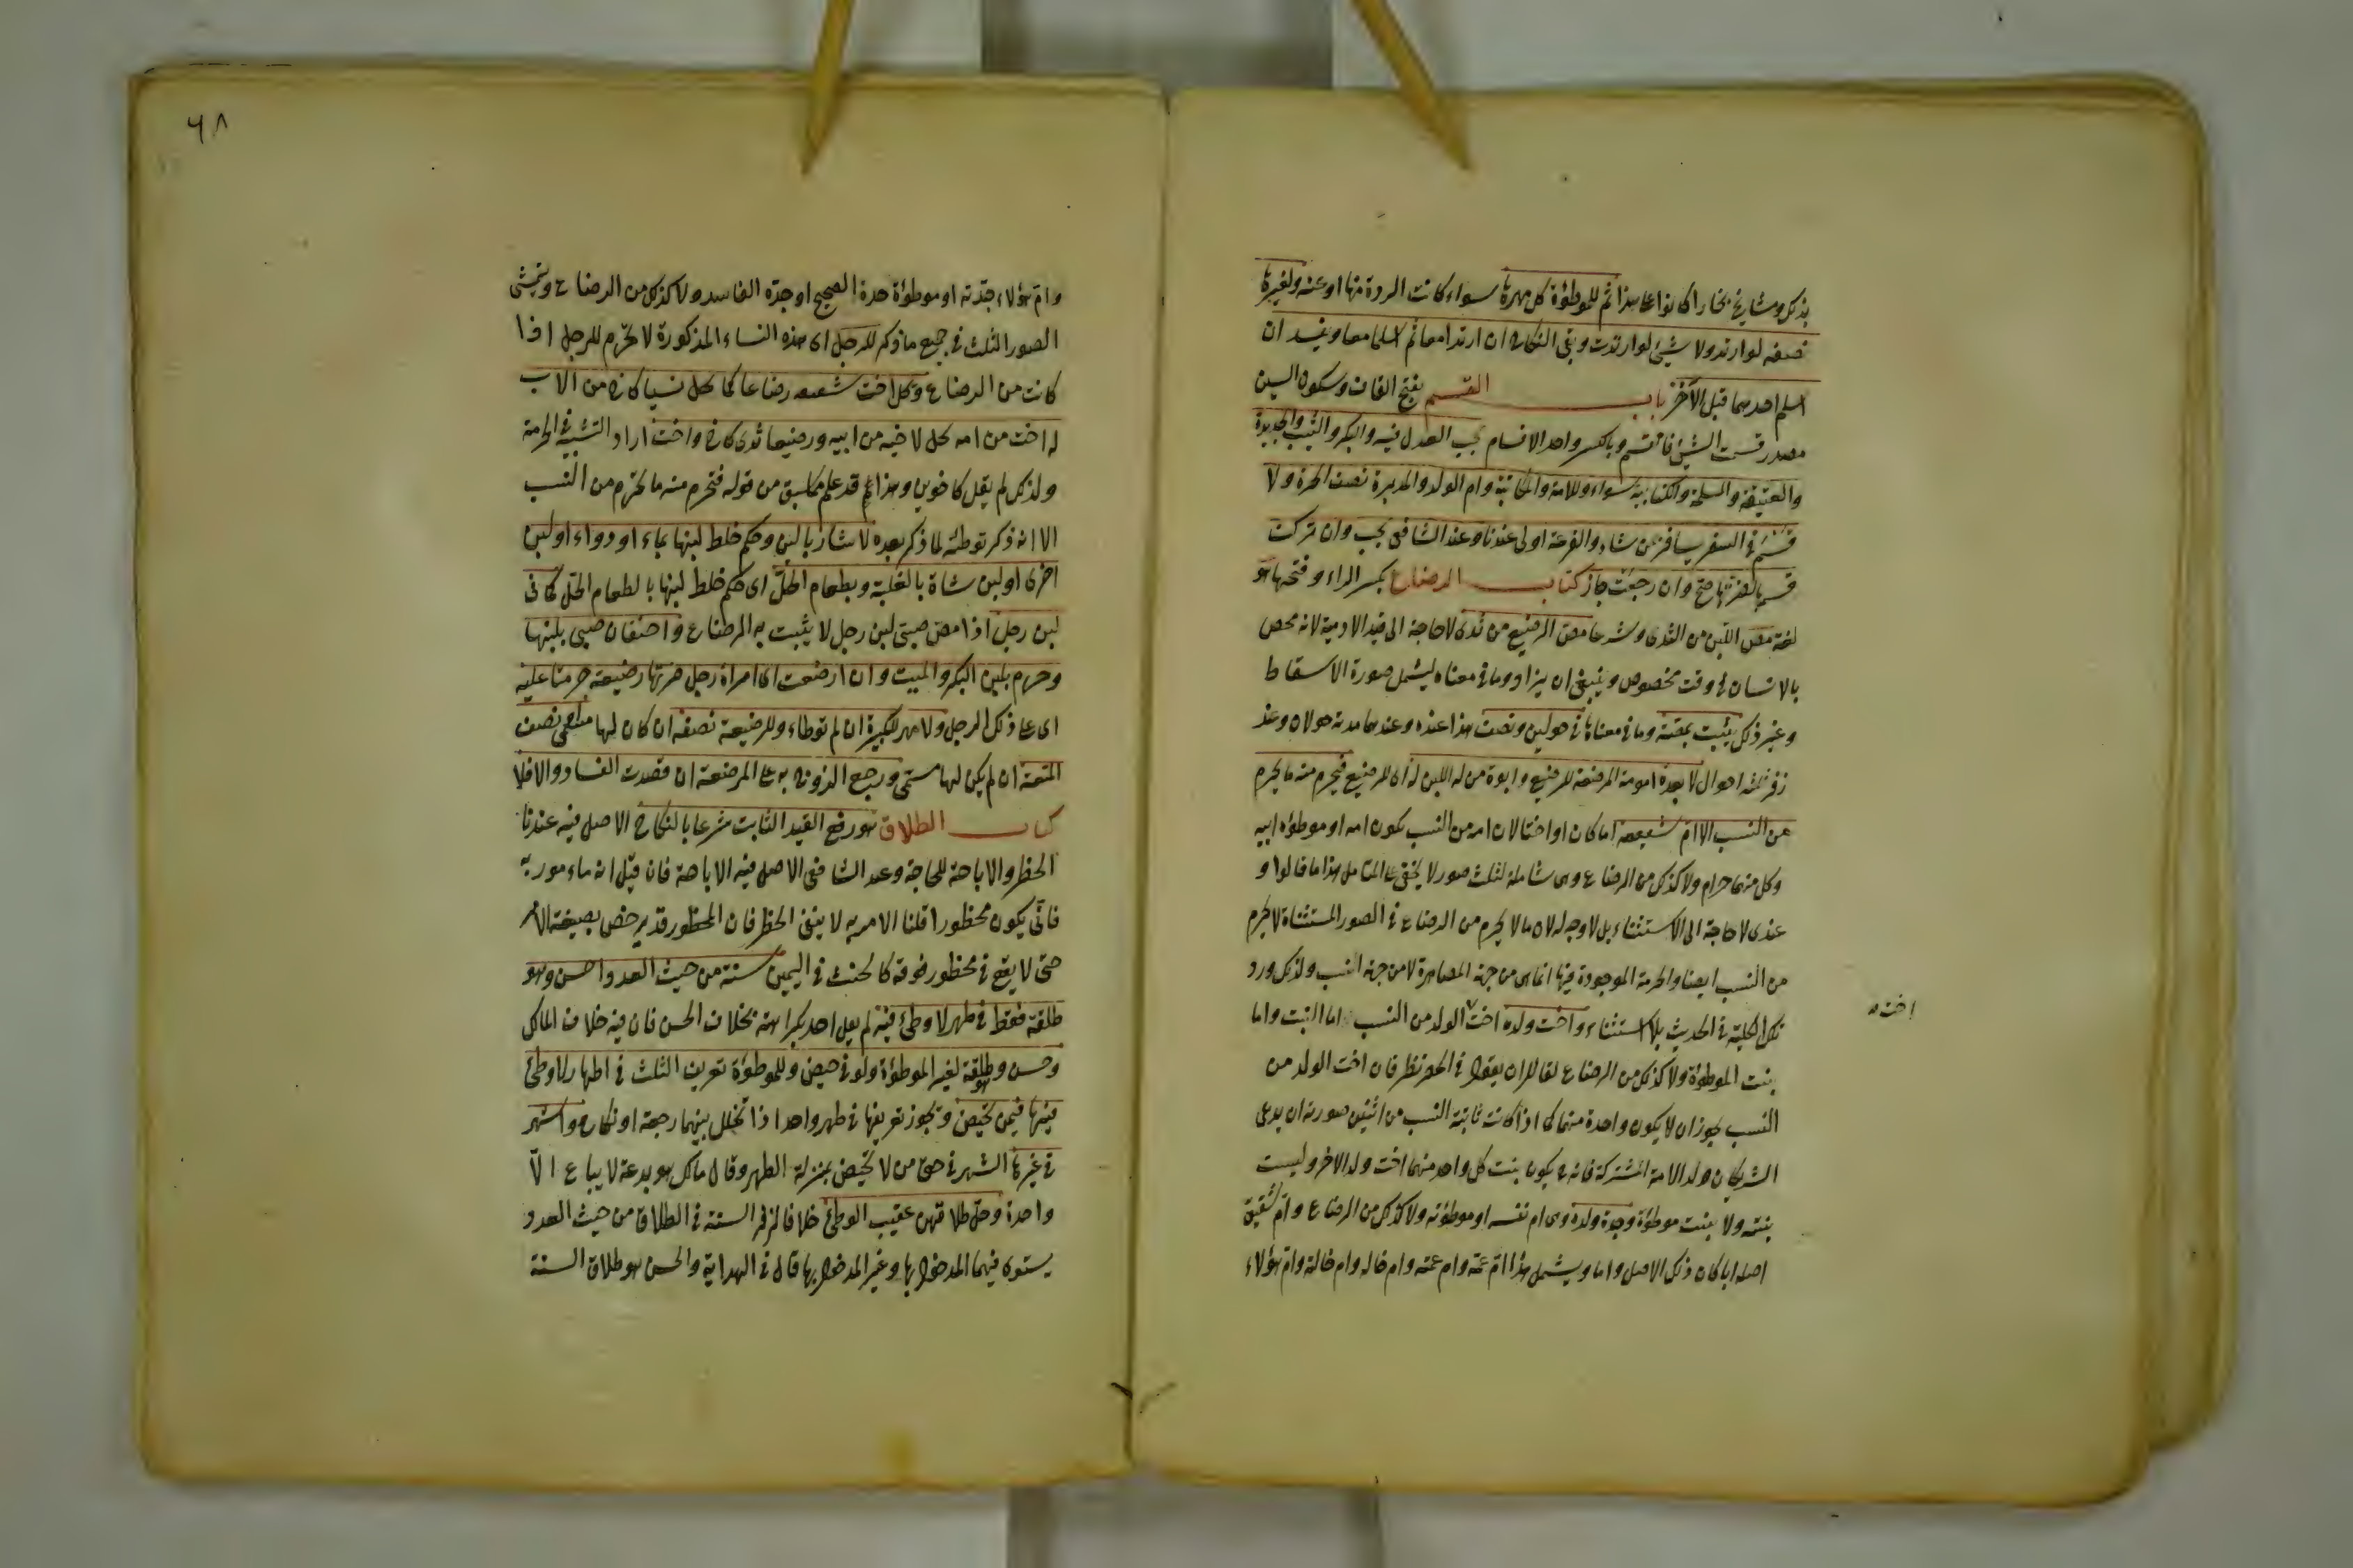 بذلك ومشايخ بخارا كانوا على هذا ثم للموطوءة كل مهرها سواء كانت الردة منها او عنه ولغيرها
نصفه لو ارتد ولا شيئ لو ارتدت وبقي النكاح ان ارتدا معا ثم اسلما معا ويفسد ان
اسلم احدهما قبل الآخر باب القسم بفتح القاف وسكون السين
مصدر قسمت الشيئ فانقسم وبالكسر واحد الاقسام يجب العدل فيه والبكر والثيب والجديدة
والعتيقة والمسلمة والكتابية سواء وللامة والمكاتبة وام الولد والمدبرة نصف الحرة ولا
قسم في السفر يسافر بمن شاء والقرعة اولى عندنا وعند الشافعي يجب وان تركت
قسمها لضرتها صح وان رجعت جاز كتاب الرضاع بكسر الراء وفتحها هو
لغة مص اللبن من الثدي وشرعا مص الرضيع من ثدي لا حاجة الى قيد الادمية لانه مخص
بالانسان في وقت مخصوص وينبغي ان يزاد وما في معناه ليشمل صورة الاسقاط
وغير ذلك يثبت بمصة وما في معناها في حولين ونصف هذا عنده وعندهما مدته حولان وعند
زفر ثلثة احوال لا بعدة امومة المرضعة للرضيع وابوة من له اللبن له اي للرضيع فيحرم منه ما يحرم
من النسب الا ام شقيقه اما كان او اختا لان امه من النسب يكون امه او موطوءة ابيه
وكل منهما حرام ولا كذلك من الرضاع وهي شاملة لثلث صور لا يخفى على المتامل هذا ما قالوا و
عندي لا حاجة الى الاستثناء بل لا وجه له لان ما لا يحرم من الرضاع في الصور المستثناة لا يحرم
من النسب ايضا والحرمة الموجودة فيها انما هي من جهة المصاهرة لا من جهة النسب ولذلك ورد
تلك الكلية في الحديث بلا استثناء واخت ولده اخت الولد من النسب اما البنت واما
بنت الموطوءة ولا كذلك من الرضاع لقائل ان يقول في الحصر نظر فان اخت الولد من
النسب يجوز ان لا يكون واحدة منهما كما اذا كانت ثابتة النسب من اثنين صورته ان يدعي
الشريكان ولد الامة المشتركة فانه ح يكون بنت كل واحد منهما اخت ولد الاخر وليست
بنته ولا بنت موطوءة وجدة ولده وهي ام نفسه او موطوءته ولا كذلك من الرضاع وام شقيق
اصله ابا كان ذلك الاصل واما ويشمل هذا ام عمه وام عمته وام خاله وام خالته وام هؤلاء
اخت
٦٨
وام هؤلاء جدته او موطوءة جده الصحيح او جده الفاسد ولا كذلك من الرضاع ويتمشى
الصور الثلث في جميع ما ذكر للرجل اي هذه النساء المذكورة لا تحرم للرجل اذا
كانت من الرضاع وتحل اخت شقيقه رضاعا كما تحل نسبا كاخ من الاب
له اخت من امه تحل لاخيه من ابيه ورضيعا ثدي كاخ واخت اراد التشبيه في الحرمة
ولذلك لم يقل كاخوين وهذا قد علم مما سبق من قوله فتحرم منه ما يحرم من النسب
الا انه ذكر توطئة لما ذكر بعده لا شاربا لبن وحكم خلط لبنها بماء او دواء او لبن
اخرى او لبن شاة بالغلبة وبطعام الحل اي حكم خلط لبنها بالطعام الحل كما في
لبن رجل اذا مص صبي لبن رجل لا يثبت به الرضاع واحتقان صبي بلبنها
وحرم بلبن البكر والميت وان ارضعت اي امراة رجل ضرتها رضيعة حرمتا عليه
اي على ذلك الرجل ولا مهر للكبيرة ان لم توطاء وللرضيعة نصفه ان كان لها مسمى نصف
المتعة ان لم يكن لها مسمى ورجع الزوج به على المرضعة ان قصدت الفساد والا فلا
كتاب الطلاق هو رفع القيد الثابت شرعا بالنكاح الاصل فيه عندنا
الحظر والاباحة للحاجة وعند الشافعي الاصل فيه الاباحة فان قيل انه ماءمور به
فانى يكون محظورا قلنا الامر به لا ينفى الحظر فان المحظور قد يرخص بصيغة الامر
حتى لا يقع في محظور فوقه كالحنث في اليمين سنته من حيث العدد واحسن وهو
طلقة فقط في طهر لا وطئ فيه لم يقل احد بكراهته بخلاف الحسن فان فيه خلاف المالك
وحسن وهو طلقة لغير الموطوءة ولو في حيض وللموطوءة تفريق الثلث في اطهار لا وطئ
فيها فيمن تحيض ويجوز تفريقها في طهر واحد اذا تخلل بينهما رجعة او نكاح واشهر
في غيرها الشهر في حق من لا تحيض بمنزلة الطهر وقال مالك هو بدعة لا يباع الا
واحدة وحل طلاقهن عقيب الوطئ خلافا لزفر السنة في الطلاق من حيث العدد
يستوى فيها المدخول بها وغير المدخول بها قال في الهداية والحسن هو طلاق السنة